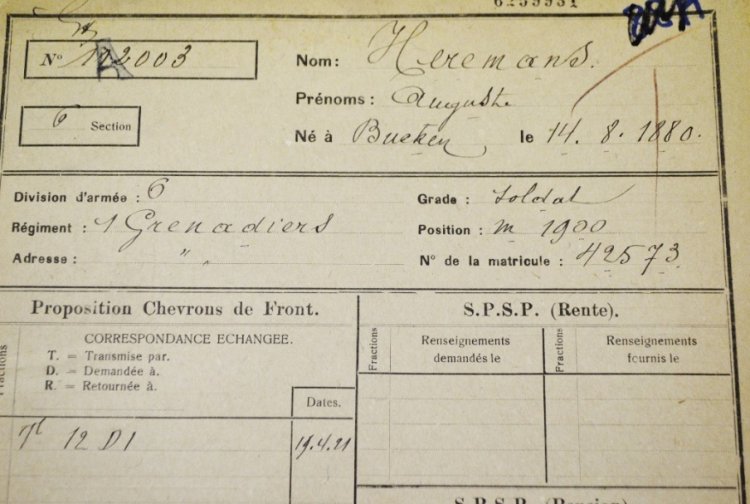 6259931
Nº 172003
Nom: Heremans.
Prénoms: Auguste
6 Section
Né à Bueken le 14. 8. 1880.
Division d'armée : 6
Grade : soldat
Régiment : 1 Grenadiers
Position : m 1900
Adresse : " "
Nº de la matricule : 42573
Proposition Chevrons de Front.
S.P.S.P. (Rente).
CORRESPONDANCE ECHANGEE.
T. = Transmise par.
D. = Demandée à.
R. = Retournée à.
Fractions
Dates.
Fractions
Renseignements
demandés le
Fractions
Renseignements
fournis le
12 DI
19.4.21
S.P.S.P. (Pension)